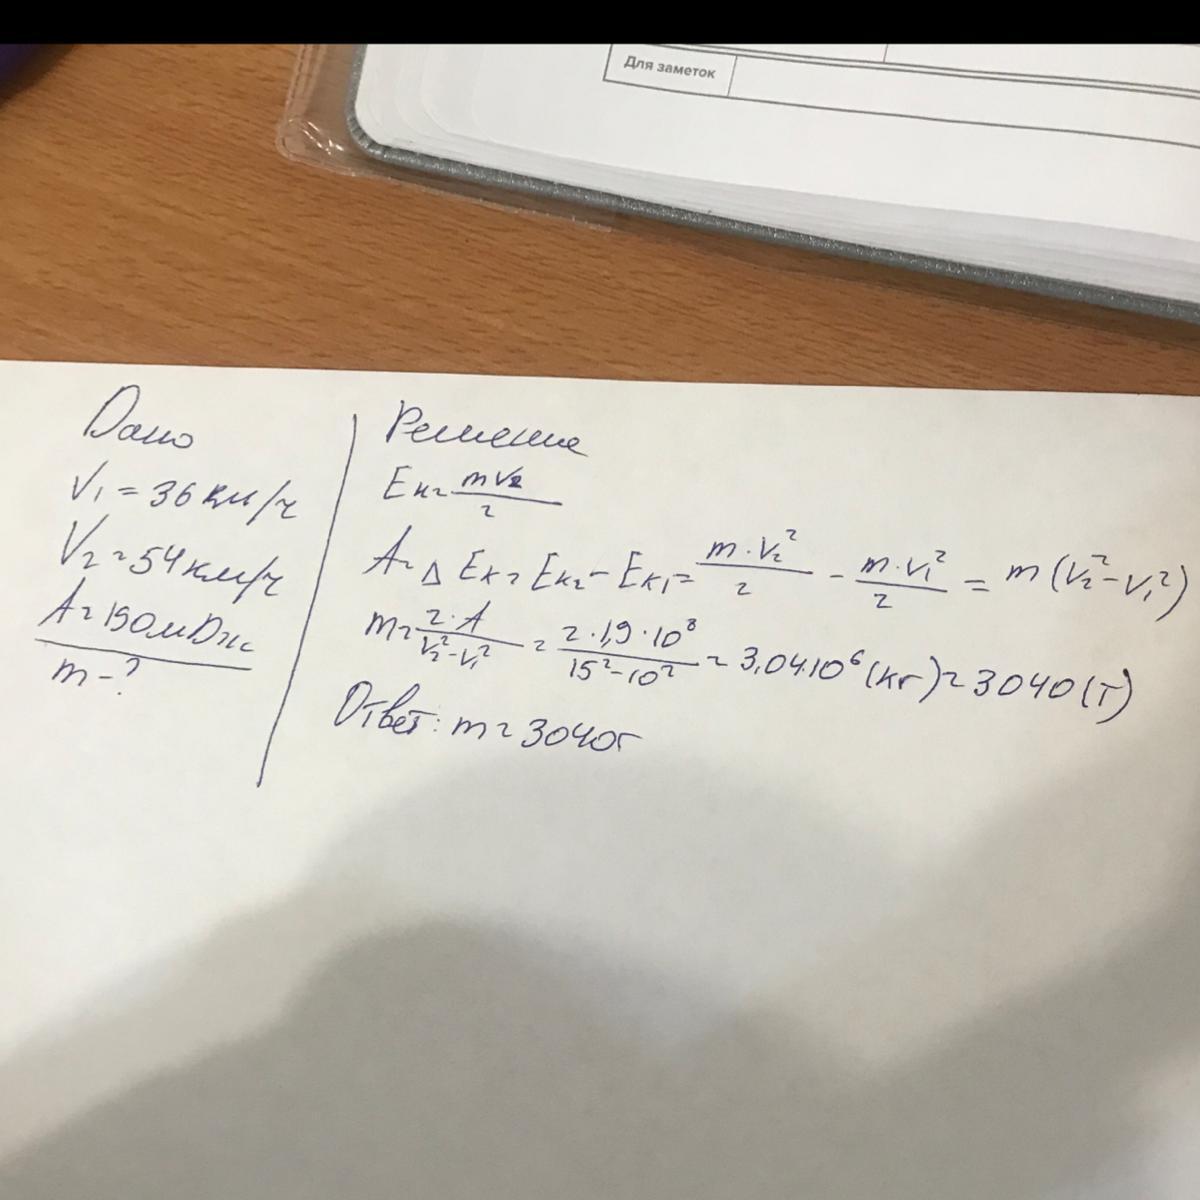 Для заметок
Дано
V₁ = 36 км/ч
V₂ = 54 км/ч
A = 190 мДж
m - ?
Решение
Eк = mv₂/2
A = Δ Eк = Eк₂ - Eк₁ = m·V₂²/2 - m·V₁²/2 = m(V₂² - V₁²)
m = 2·A/V₂²-V₁² = 2·1,9·10⁸/15²-10² = 3,04·10⁶(кг) = 3040(т)
Ответ: m = 3040т